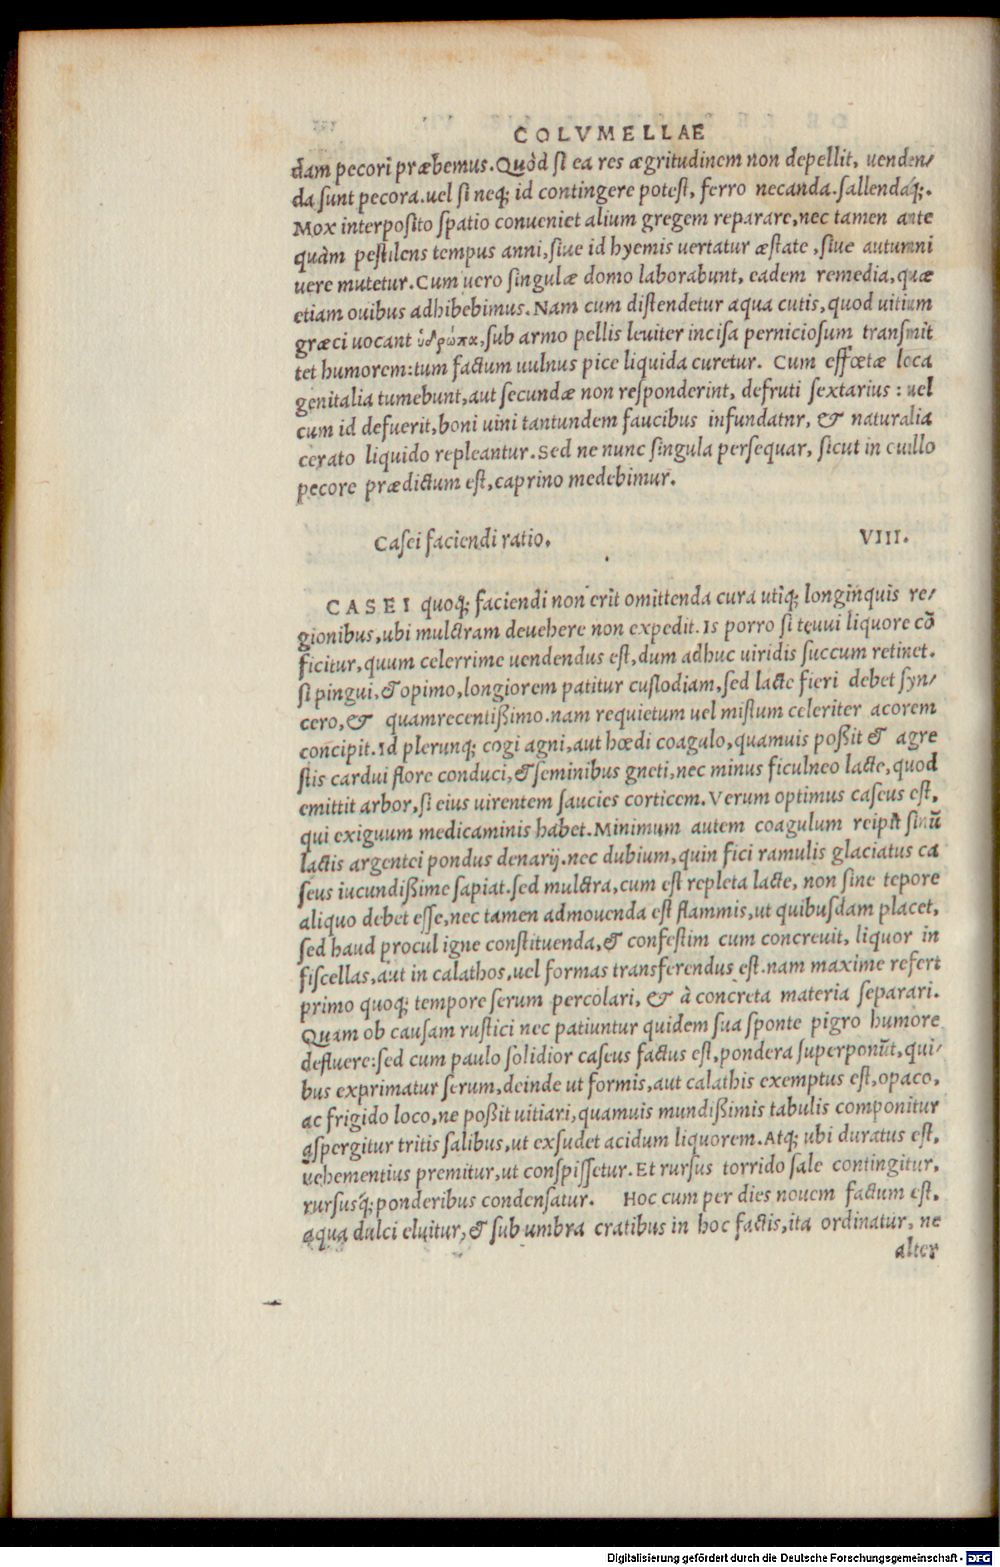 COLVMELLAE
dam pecori præbemus. Quòd si ea res ægritudinem non depellit, uenden/
da sunt pecora. uel si neq; id contingere potest, ferro necanda. sallendaq́;.
Mox interposito spatio conueniet alium gregem reparare, nec tamen ante
quàm pestilens tempus anni, siue id hyemis uertatur æstate, siue autumni
uere mutetur. Cum uero singulæ domo laborabunt, eadem remedia, quæ
etiam ouibus adhibebimus. Nam cum distendetur aqua cutis, quod uitium
græci uocant ὑδρώπα, sub armo pellis leuiter incisa perniciosum transmit
tet humorem: tum factum uulnus pice liquida curetur. Cum effœtæ loca
genitalia tumebunt, aut secundæ non responderint, defruti sextarius: uel
cum id defuerit, boni uini tantundem faucibus infundatnr, & naturalia
cerato liquido repleantur. Sed ne nunc singula persequar, sicut in ouillo
pecore prædictum est, caprino medebimur.
Casei faciendi ratio. VIII.
CASEI quoq; faciendi non erit omittenda cura utiq; longinquis re/
gionibus, ubi mulctram deuehere non expedit. Is porro si tenui liquore cõ
ficitur, quum celerrime uendendus est, dum adhuc uiridis succum retinet.
si pingui, & opimo, longiorem patitur custodiam, sed lacte fieri debet syn/
cero, & quamrecentißimo. nam requietum uel mistum celeriter acorem
concipit. Id plerunq; cogi agni, aut hœdi coagulo, quamuis poßit & agre
stis cardui flore conduci, & seminibus gneti, nec minus ficulneo lacte, quod
emittit arbor, si eius uirentem saucies corticem. Verum optimus caseus est,
qui exiguum medicaminis habet. Minimum autem coagulum recipit sinũ
lactis argentei pondus denarij. nec dubium, quin fici ramulis glaciatus ca
seus iucundißime sapiat. sed mulctra, cum est repleta lacte, non sine tepore
aliquo debet esse, nec tamen admouenda est flammis, ut quibusdam placet,
sed haud procul igne constituenda, & confestim cum concreuit, liquor in
fiscellas, aut in calathos, uel formas transferendus est. nam maxime refert
primo quoq; tempore serum percolari, & à concreta materia separari.
Quam ob causam rustici nec patiuntur quidem sua sponte pigro humore
defluere: sed cum paulo solidior caseus factus est, pondera superponũt, qui/
bus exprimatur serum, deinde ut formis, aut calathis exemptus est, opaco,
ac frigido loco, ne poßit uitiari, quamuis mundißimis tabulis componitur
aspergitur tritis salibus, ut exsudet acidum liquorem. Atq; ubi duratus est,
uehementius premitur, ut conspissetur. Et rursus torrido sale contingitur,
rursusq́; ponderibus condensatur. Hoc cum per dies nouem factum est,
aqua dulci eluitur, & sub umbra cratibus in hoc factis, ita ordinatur, ne
alter
Digitalisierung gefördert durch die Deutsche Forschungsgemeinschaft - DFG